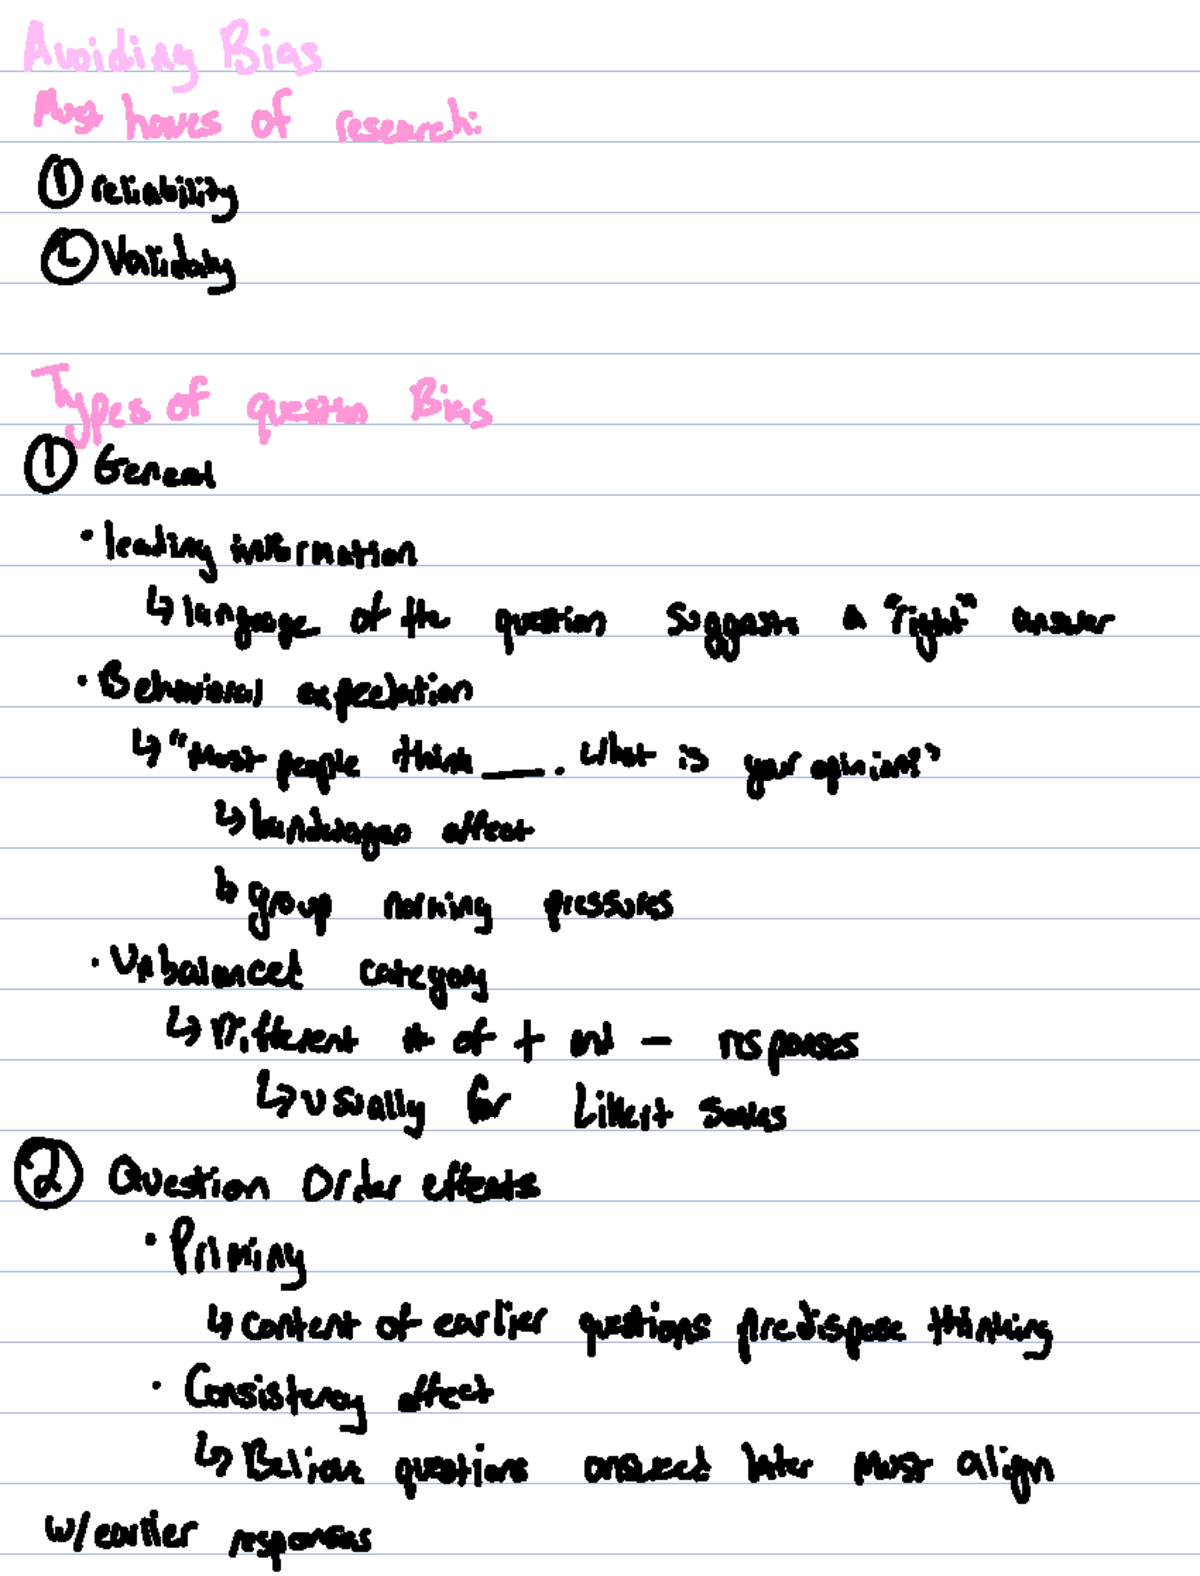 Avoiding Bias
Must haves of research:
① reliability
② Validity
Types of question Bias
① General
· leading information
↳ language of the question suggests a "right" answer
· Behavioral expectation
↳ "Most people think ___. What is your opinion?"
↳ bandwagon affect
↳ group norming pressures
· Unbalanced category
↳ Different # of + and - responses
↳ usually for Likert Scales
② Question Order effects
· Priming
↳ content of earlier questions predispose thinking
· Consistency affect
↳ Believe questions answered later must align
w/earlier responses